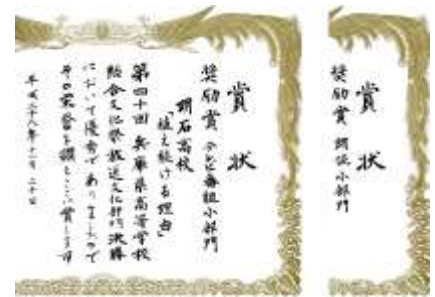 賞状
奨励賞 テレビ番組小部門
明石高校
「植え続ける理由」
第四十回 兵庫県高等学校
総合文化祭放送文化部門決勝
において優秀でありましたので
その栄誉を讃えここに賞します
平成二十八年十一月二十日
賞状
奨励賞 朗読小部門